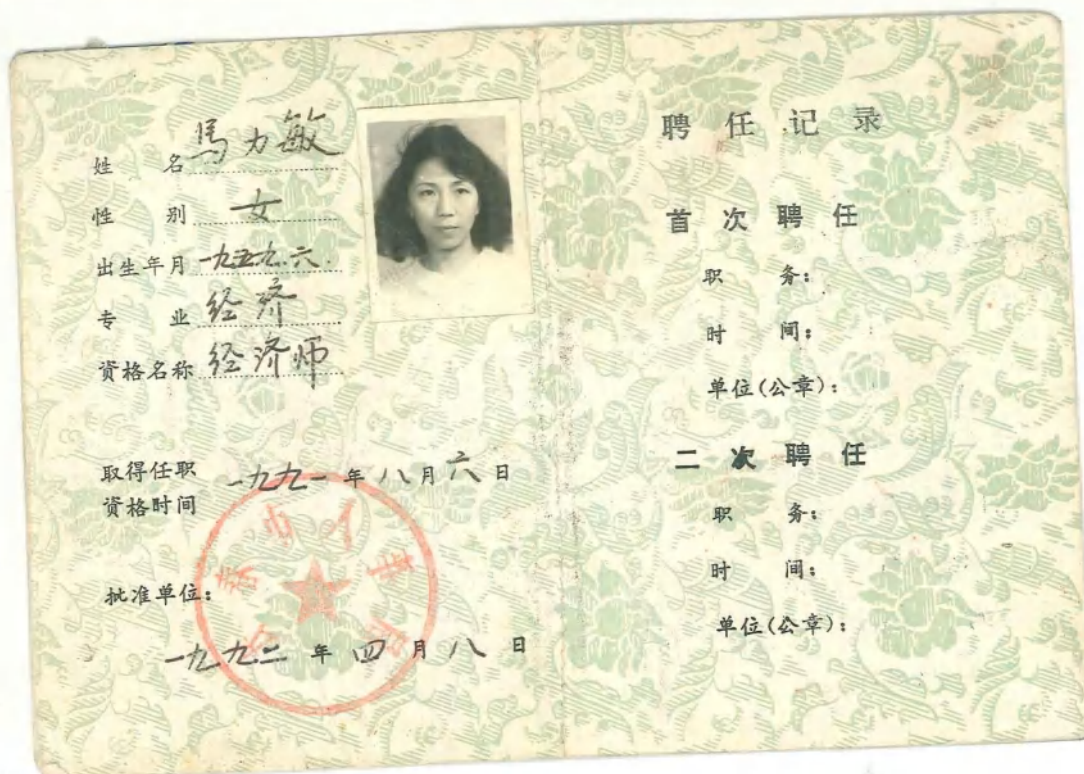 姓 名 馬力敏
性 别 女
出生年月 一九五九.六.
专 业 经济
资格名称 经济师
取得任职
资格时间 一九九一年八月六日
批准单位:
一九九二年四月八日
聘任记录
首次聘任
职 务:
时 间:
单位(公章):
二次聘任
职 务:
时 间:
单位(公章):